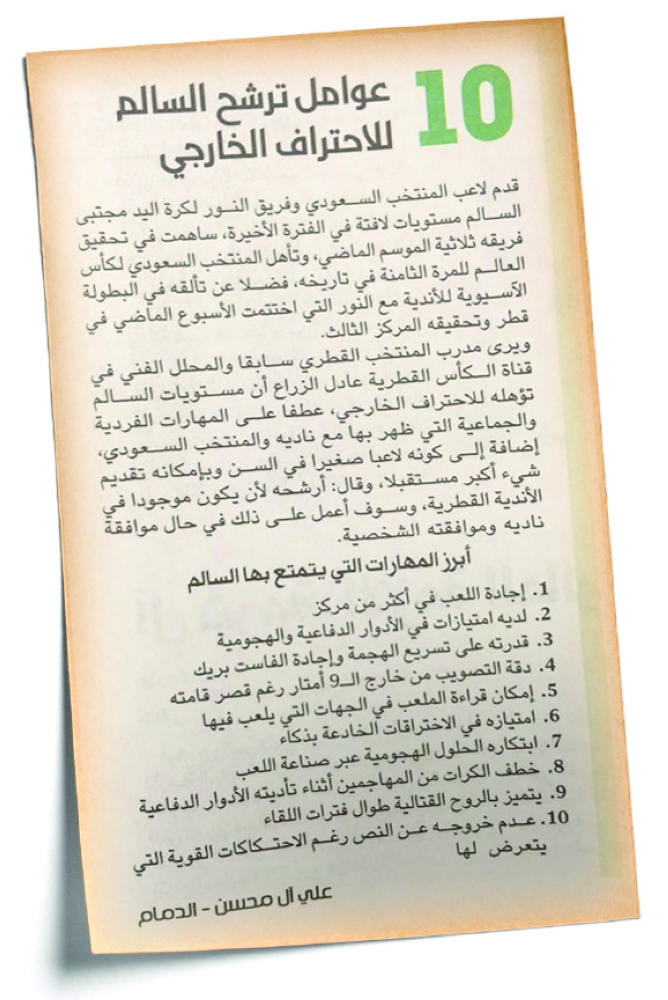 10 عوامل ترشح السالم
للاحتراف الخارجي
قدم لاعب المنتخب الســعودي وفريق النــور لكرة اليد مجتبى
الســالم مستويات لافتة في الفترة الأخيرة، ساهمت في تحقيق
فريقه ثلاثية الموسم الماضي، وتأهل المنتخب السعودي لكأس
العالــم للمرة الثامنة في تاريخه، فضــلا عن تألقه في البطولة
الآســيوية للأندية مع النور التي اختتمت الأسبوع الماضي في
قطر وتحقيقه المركز الثالث.
ويرى مدرب المنتخب القطري ســابقا والمحلل الفني في
قناة الــكأس القطرية عادل الزراع أن مســتويات الســالم
تؤهله للاحتراف الخارجي، عطفا علــى المهارات الفردية
والجماعية التي ظهر بها مع ناديه والمنتخب الســعودي،
إضافة إلــى كونه لاعبا صغيرا في السن وبإمكانه تقديم
شيء أكبر مســتقبلا، وقال: أرشحه لأن يكون موجودا في
الأندية القطرية، وسوف أعمل علــى ذلك في حال موافقة
ناديه وموافقته الشخصية.
أبرز المهارات التي يتمتع بها السالم
1. إجادة اللعب في أكثر من مركز
2. لديه امتيازات في الأدوار الدفاعية والهجومية
3. قدرته على تسريع الهجمة وإجادة الفاست بريك
4. دقة التصويب من خارج الــ9 أمتار رغم قصر قامته
5. إمكان قراءة الملعب في الجهات التي يلعب فيها
6. امتيازه في الاختراقات الخادعة بذكاء
7. ابتكاره الحلول الهجومية عبر صناعة اللعب
8. خطف الكرات من المهاجمين أثناء تأديته الأدوار الدفاعية
9. يتميز بالروح القتالية طوال فترات اللقاء
10. عــدم خروجــه عــن النص رغــم الاحتــكاكات القوية التي
يتعرض لها
علي آل محسن - الدمام